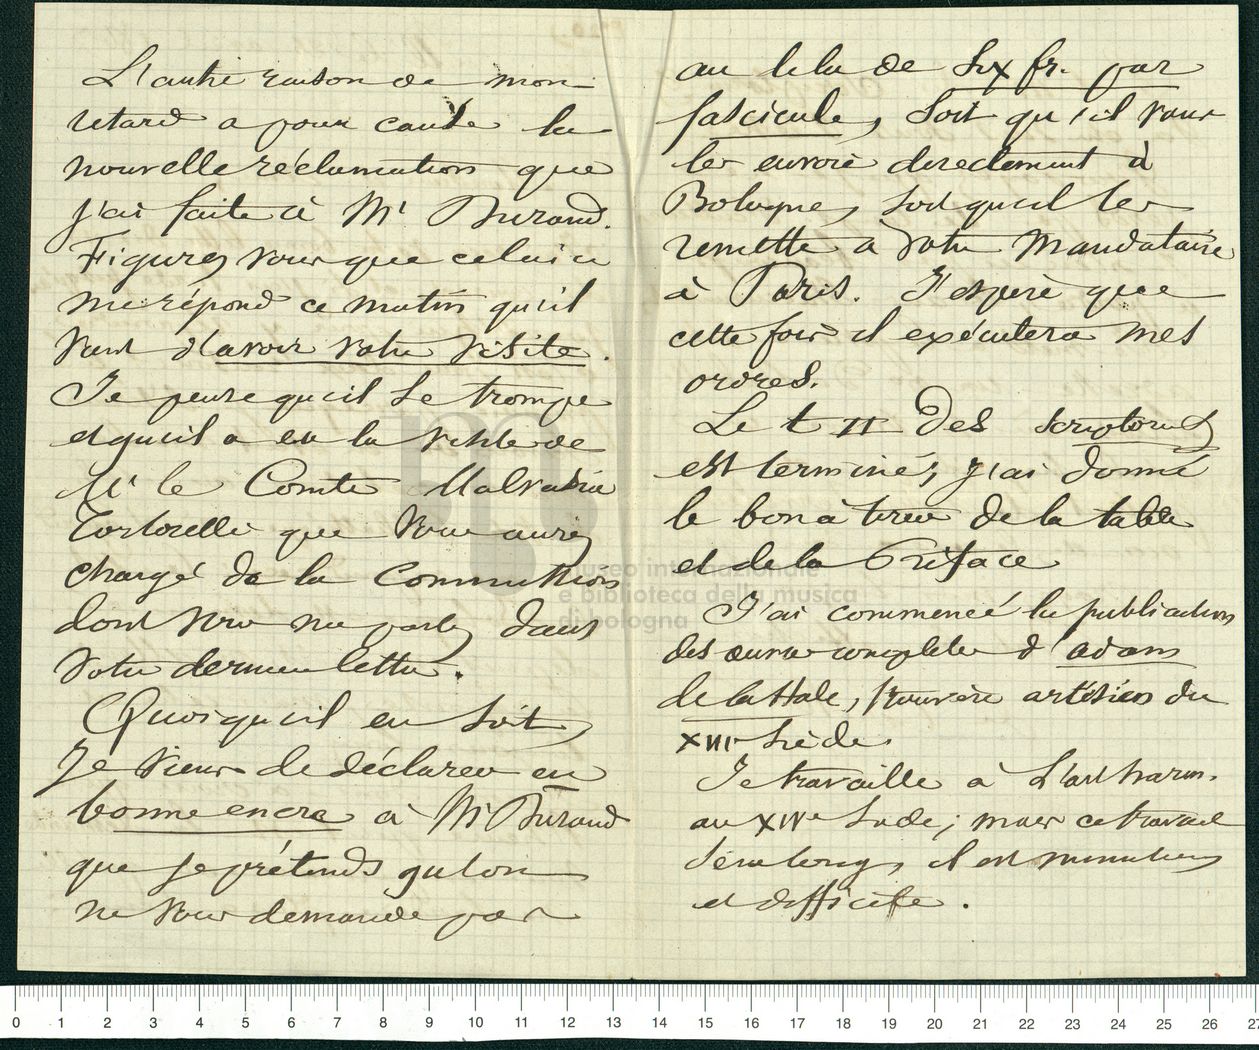 L'autre raison de mon
retard a pour cause la
nouvelle réclamation que
j'ai faite à Mr Durand.
Figurez vous que celui ci
me répond ce matin qu'il
vient d'avoir votre visite.
Je pense qu'il se trompe
et qu'il a eu la visite de
Mr le Comte Malvasia
Tortorelli que vous aurez
chargé de la Commission
dont vous me parlez dans
votre dernière lettre.
Quoiqu'il en soit,
Je viens de déclarer en
bonne encre à Mr Durand
que je prétends qu'on
ne vous demande pas
au delà de Six fr. par
fascicule, soit qu'il vous
les envoie directement à
Bologne, soit qu'il les
remette à votre Mandataire
à Paris. J'espère que
cette fois il exécutera mes
ordres.
Le t II des Scriptores
est terminé; j'ai donné
le bon à tirer de la table
et de la Préface
J'ai commencé la publication
des œuvres complètes d'adam
de la Hale, trouvère artésien du
XIIIe siècle.
Je travaille à L'art harm.
au XIVe siècle; mais ce travail
sera long, il est minutieux
et difficile.
museo internazionale
e biblioteca della musica
di bologna
0 1 2 3 4 5 6 7 8 9 10 11 12 13 14 15 16 17 18 19 20 21 22 23 24 25 26 27